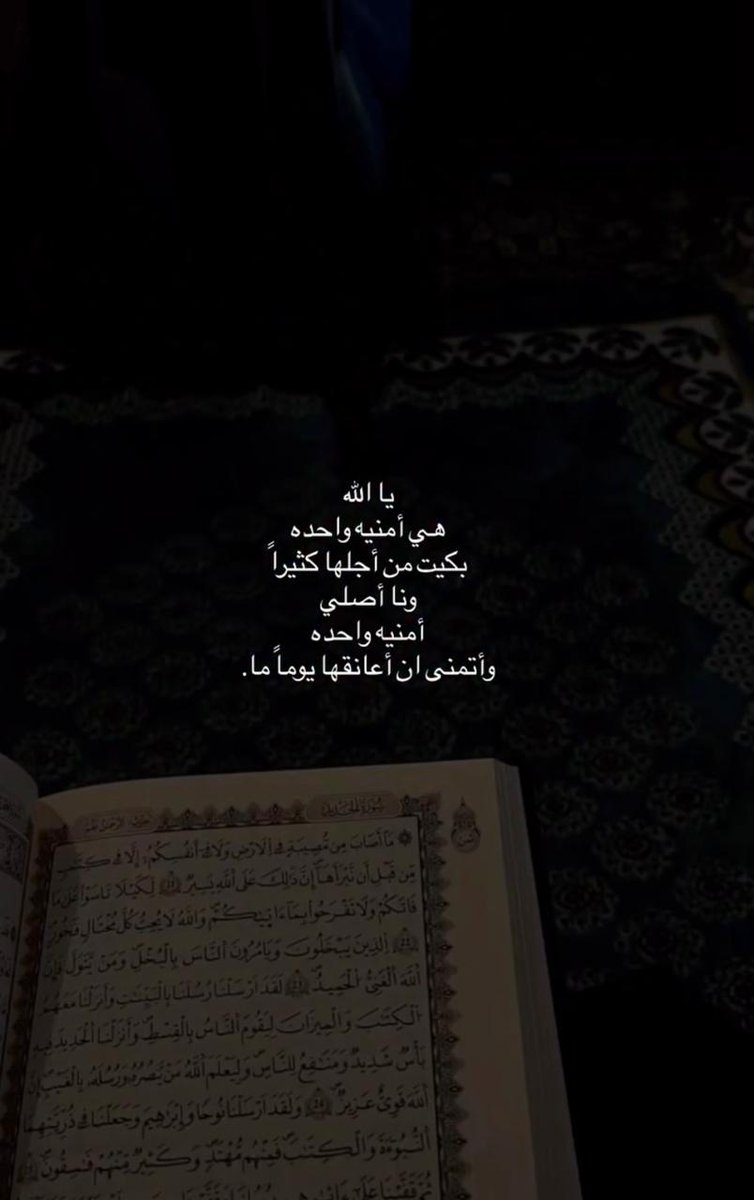 يا الله
هي أمنيه واحده
بكيت من أجلها كثيراً
ونا أصلي
أمنيه واحده
وأتمنى ان أعانقها يوماً ما.
سورة الحديد
مَا أَصَابَ مِن مُّصِيبَةٍ فِي اِلَارْضِ وَلَا فِي أَنفُسِكُمُ إِلَّا فِي كِتَٰبٍ
مِّن قَبْلِ أَن نَّبْرَأَهَا إِنَّ ذَٰلِكَ عَلَى اَللَّهِ يَسِيرٌ لِّكَيْلَا تَاسَوْاْ عَلَىٰ مَا
فَاتَكُمْ وَلَا تَفْرَحُواْ بِمَا ءَاتَىٰكُمْ وَاللَّهُ لَا يُحِبُّ كُلَّ مُخْتَالٍ فَخُورٍ
اِلذِينَ يَبْخَلُونَ وَيَامُرُونَ اَلنَّاسَ بِالْبُخْلِ وَمَنْ يَّتَوَلَّ فَإِنَّ
اَللَّهَ اَلْغَنِيُّ اُلْحَمِيدُ لَقَدَ اَرْسَلْنَا رُسُلَنَا بِالْبَيِّنَٰتِ وَأَنزَلْنَا مَعَهُمُ
اُلْكِتَٰبَ وَالْمِيزَانَ لِيَقُومَ اَلنَّاسُ بِالْقِسْطِ وَأَنزَلْنَا اَلْحَدِيدَ فِيهِ
بَأْسٌ شَدِيدٌ وَمَنَٰفِعُ لِلنَّاسِ وَلِيَعْلَمَ اَللَّهُ مَنْ يَّنصُرُهُ وَرُسُلَهُ بِالْغَيْبِ إِنَّ
اَللَّهَ قَوِيٌّ عَزِيزٌ وَلَقَدَ اَرْسَلْنَا نُوحًا وَإِبْرَٰهِيمَ وَجَعَلْنَا فِي ذُرِّيَّتِهِمَا
اَلنُّبُوءَةَ وَالْكِتَٰبَ فَمِنْهُم مُّهْتَدٍ وَكَثِيرٌ مِّنْهُمْ فَٰسِقُونَ